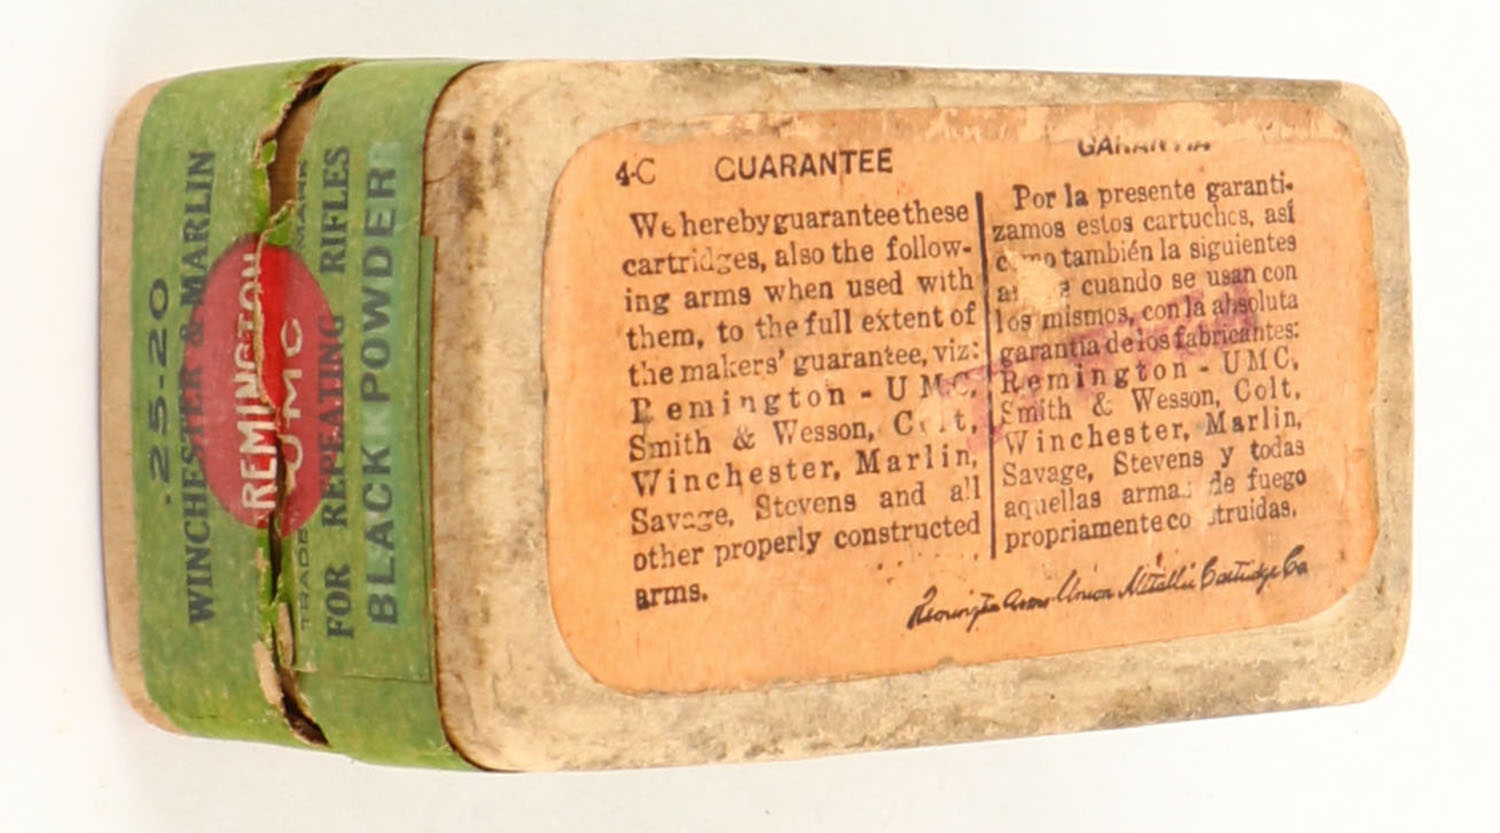 .25-20
WINCHESTER & MARLIN
REMINGTON
UMC
TRADE MARK
FOR REPEATING RIFLES
BLACK POWDER
4-C GUARANTEE
We hereby guarantee these
cartridges, also the follow-
ing arms when used with
them, to the full extent of
the makers' guarantee, viz:
Remington - UMC,
Smith & Wesson, Colt,
Winchester, Marlin,
Savage, Stevens and all
other properly constructed
arms.
GARANTIA
Por la presente garanti-
zamos estos cartuchos, así
como también la siguientes
cuando se usan con
los mismos, con la absoluta
garantia de los fabricantes:
Remington - UMC,
Smith & Wesson, Colt,
Winchester, Marlin,
Savage, Stevens y todas
aquellas armas de fuego
propriamente construidas.
Remington Arms Union Metallic Cartridge Co